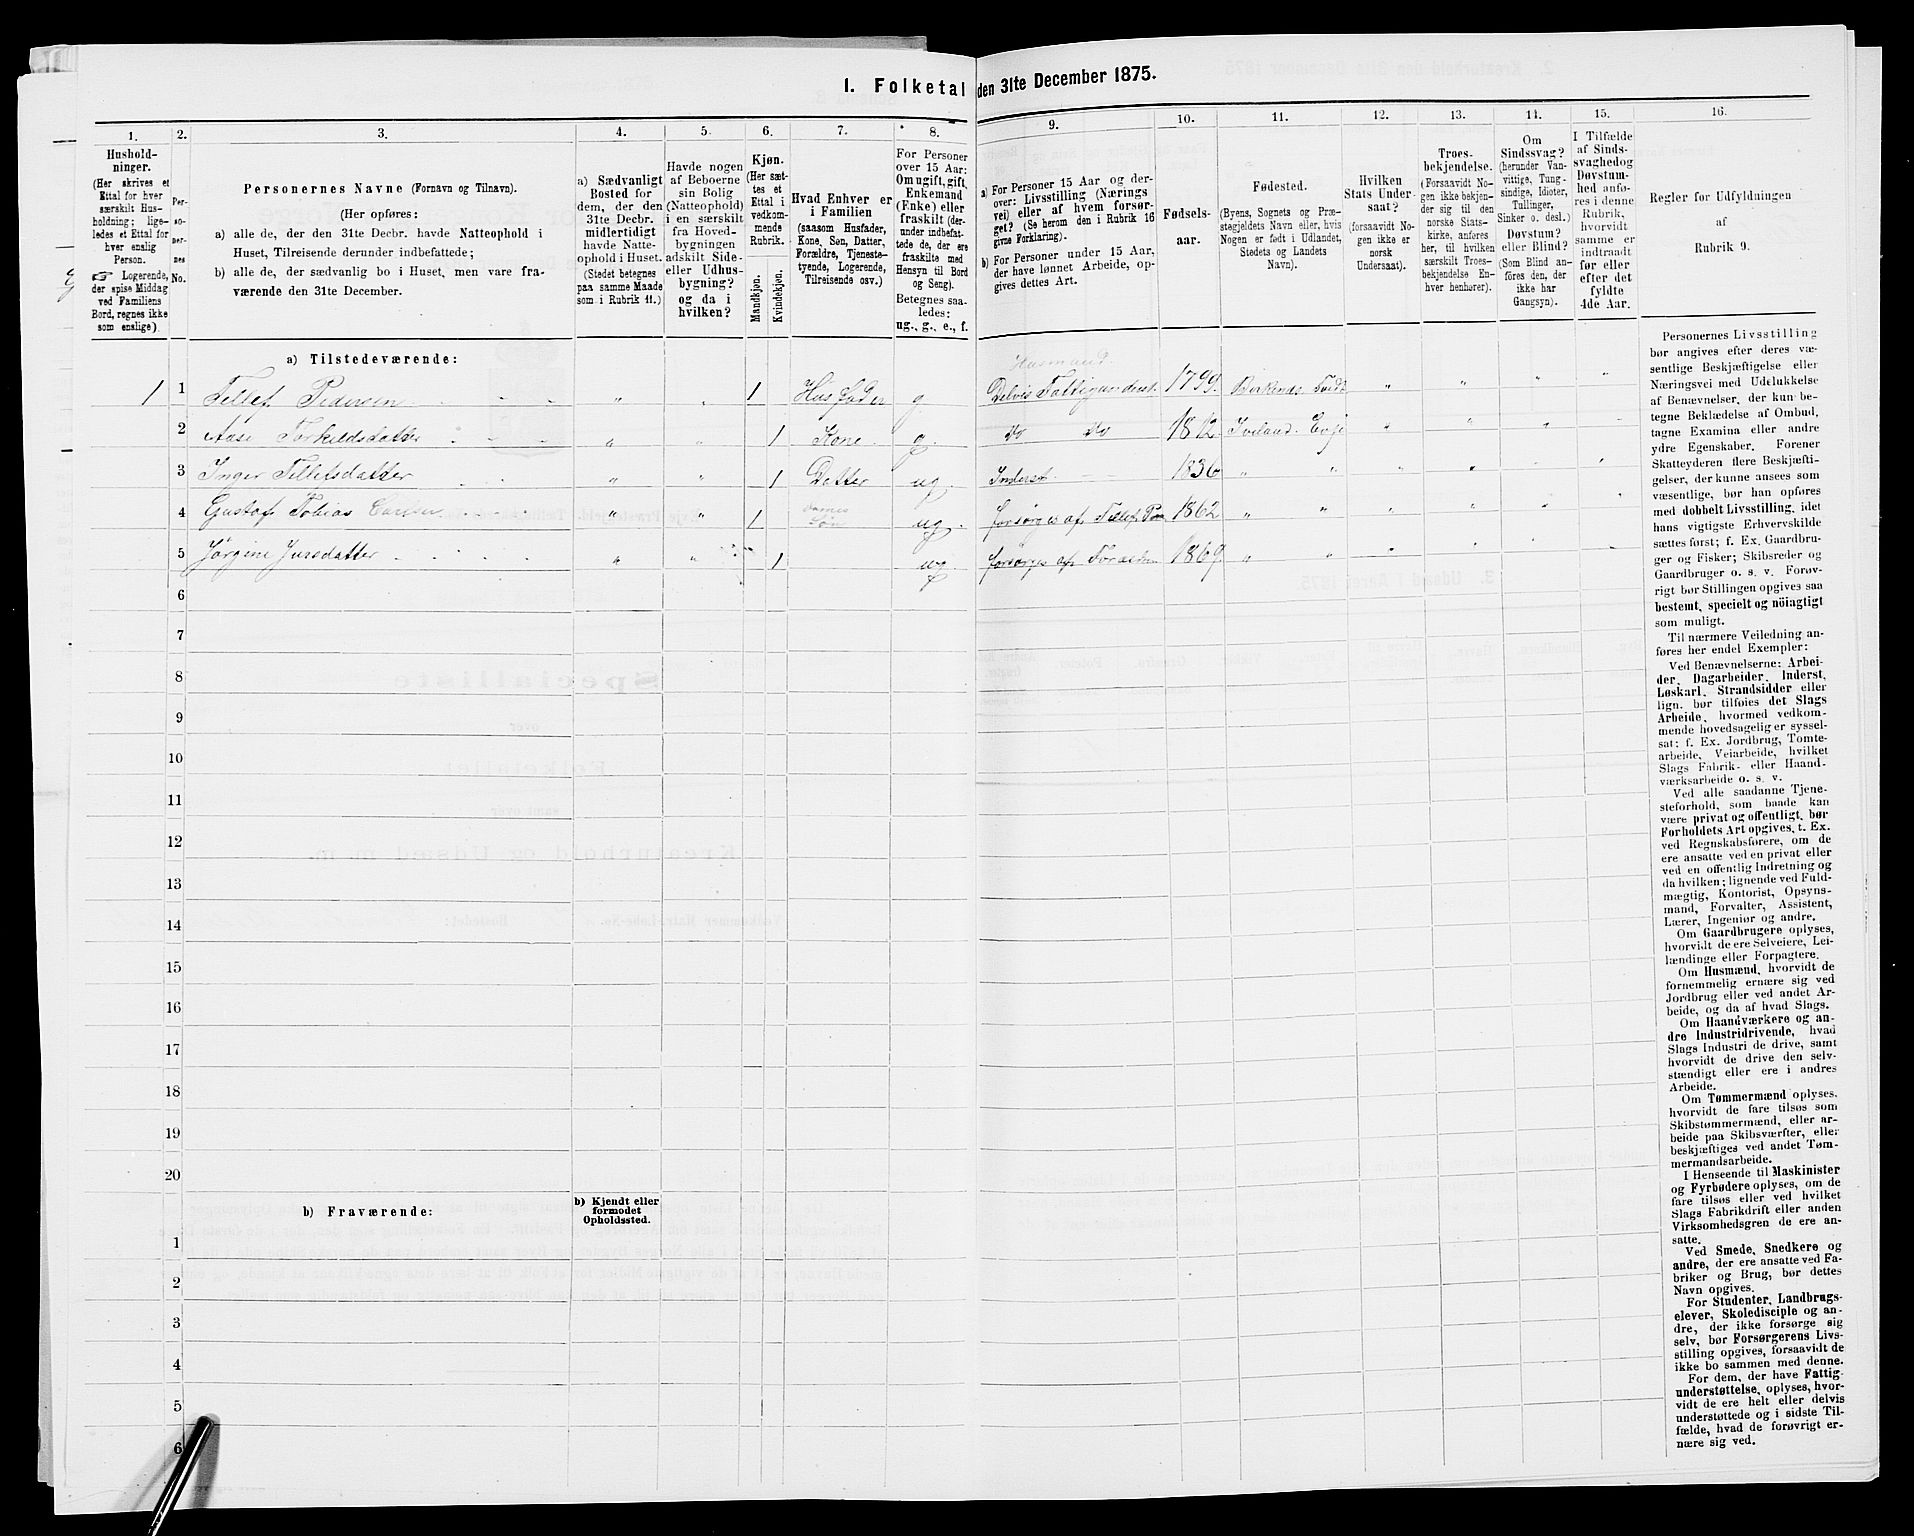 I. Folketal den 31te December 1875.
1.
2.
3.
4.
5.
6.
7.
8.
9.
10.
11.
12.
13.
14.
15.
16.
Hushold-
ninger.
(Her skrives et
Ettal for hver
særskilt Hus-
holdning; lige-
ledes et Ettal for
hver enslig
Person.
☞ Logerende,
der spise Middag
ved Familiens
Bord, regnes ikke
som enslige)
Per-
so-
ner-
nes
No.
Personernes Navne (Fornavn og Tilnavn).
(Her opføres:
a) alle de, der den 31te Decbr. havde Natteophold i
Huset, Tilreisende derunder indbefattede;
b) alle de, der sædvanlig bo i Huset, men vare fra-
værende den 31te December.
a) Sædvanligt
Bosted for
dem, der den
31te Decbr.
midlertidigt
havde Natte-
ophold i Huset.
(Stedet betegnes
paa samme Maade
som i Rubrik 11.)
Havde nogen
af Beboerne
sin Bolig
(Natteophold)
i en særskilt
fra Hoved-
bygningen
adskilt Side-
eller Udhus-
bygning?
og da i
hvilken?
Kjøn.
(Her sæt-
tes et
Ettal i
vedkom-
mende
Rubrik.
Mandkjøn.
Kvindekjøn.
Hvad Enhver er
i Familien
(saasom Husfader,
Kone, Søn, Datter,
Forældre, Tjeneste-
tyende, Logerende,
Tilreisende osv.)
For Personer
over 15 Aar:
Om ugift, gift,
Enkemand
(Enke) eller
fraskilt (der-
under indbefat-
tede de, der ere
fraskilte med
Hensyn til Bord
og Seng).
Betegnes saa-
ledes:
ug., g., e., f.
a) For Personer 15 Aar og der-
over: Livsstilling (Nærings
vei) eller af hvem forsør-
get? (Se herom den i Rubrik 16
givne Forklaring).
b) For Personer under 15 Aar,
der have lønnet Arbeide, op-
gives dettes Art.
Fødsels-
aar.
Fødested.
(Byens, Sognets og Præ-
stegjeldets Navn eller, hvis
Nogen er født i Udlandet,
Stedets og Landets
Navn).
Hvilken
Stats Under-
saat?
(forsaavidt No-
gen ikke er
norsk
Undersaat).
Troes-
bekjendelse.
(Forsaavidt No-
gen ikke bekjen-
der sig til den
norske Stats-
kirke, anføres
her, til hvilken
særskilt Troes-
bekjendelse En-
hver henhører).
Om
Sindssvag?
(herunder Van-
vittige, Tung-
sindige, Idioter,
Tullinger,
Sinker o. desl.)
Døvstum?
eller Blind?
(Som Blind an-
føres den, der
ikke har
Gangsyn).
I Tilfælde
af Sinds-
svaghed og
Døvstum-
hed anfø-
res i denne
Rubrik,
hvorvidt
samme er
indtraadt
før eller
efter det
fyldte
4de Aar.
Regler for Udfyldningen
af
Rubrik 9.
a) Tilstedeværende:
Husmand
1 1 Tellef Pedersen " " 1 Husfader g Delvis Fattigunderst. 1799. Birkenæs " " " "
2 Aase Torkildsdatter " " 1 Kone g. Do Do 1812. Iveland. Evje " " " "
3 Inger Tellefsdatter " " 1 Datter ug. Inderst. 1836 " " " " " "
4 Gustaf Tobias " " 1 Søn ug. forsørges af Tellef 1862 " " " " " "
5 Jørgine " " 1 ug. forsørges af 1869. " " " " " "
6
7
8
9
10
11
12
13
14
15
16
17
18
19
20
b) Fraværende:
b) Kjendt eller
formodet
Opholdssted.
1
2
3
4
5
6
Personernes Livsstilling
bør angives efter deres væ-
sentlige Beskjæftigelse eller
Næringsvei med Udelukkelse
af Benævnelser, der kun be-
tegne Beklædelse af Ombud,
tagne Examina eller andre
ydre Egenskaber. Forener
Skatteyderen flere Beskjæfti-
gelser, der kunne ansees som
væsentlige, bør han opføres
med dobbelt Livsstilling, idet
hans vigtigste Erhvervskilde
sættes først; f. Ex. Gaardbru-
ger og Fisker; Skibsreder og
Gaardbruger o. s. v. Forøv-
rigt bør Stillingen opgives saa
bestemt, specielt og nöiagtigt
som muligt.
Til nærmere Veiledning an-
føres her endel Exempler:
Ved Benævnelserne: Arbei-
der, Dagarbeider, Inderst,
Løskarl, Strandsidder eller
lign. bør tilføies det Slags
Arbeide, hvormed vedkom-
mende hovedsagelig er syssel-
sat; f. Ex. Jordbrug, Tomte-
arbeide, Veiarbeide, hvilket
Slags Fabrik- eller Haand-
værksarbeide o. s. v.
Ved alle saadanne Tjene-
steforhold, som baade kan
være privat og offentligt, bør
Forholdets Art opgives, t. Ex.
ved Regnskabsførere, om de
ere ansatte ved en privat eller
ved en offentlig Indretning og
da hvilken; lignende ved Fuld-
mægtig, Kontorist, Opsyns-
mand, Forvalter, Assistent,
Lærer, Ingeniør og andre.
Om Gaardbrugere oplyses,
hvorvidt de ere Selveiere, Lei-
lændinge eller Forpagtere.
Om Husmænd, hvorvidt de
fornemmelig ernære sig ved
Jordbrug eller ved andet Ar-
beide, og da af hvad Slags.
Om Haandværkere og an-
dre Industridrivende, hvad
Slags Industri de drive, samt
hvorvidt de drive den selv-
stændigt eller ere i andres
Arbeide.
Om Tømmermænd oplyses,
hvorvidt de fare tilsøs som
Skibstømmermænd, eller ar-
beide paa Skibsværfter, eller
beskjæftiges ved andet Tøm-
mermandsarbeide.
I Henseende til Maskinister
og Fyrbødere oplyses, om de
fare tilsøs eller ved hvilket
Slags Fabrikdrift eller anden
Virksomhedsgren de ere an-
satte.
Ved Smede, Snedkere og
andre, der ere ansatte ved Fa-
briker og Brug, bør dettes
Navn opgives.
For Studenter, Landbrugs-
elever, Skoledisciple og an-
dre, der ikke forsørge sig
selv, bør Forsørgerens Livs-
stilling opgives, forsaavidt de
ikke bo sammen med denne.
For dem, der have Fattig-
understøttelse, oplyses, hvor-
vidt de ere helt eller delvis
understøttede og i sidste Til-
fælde, hvad de forøvrigt er-
nære sig ved.